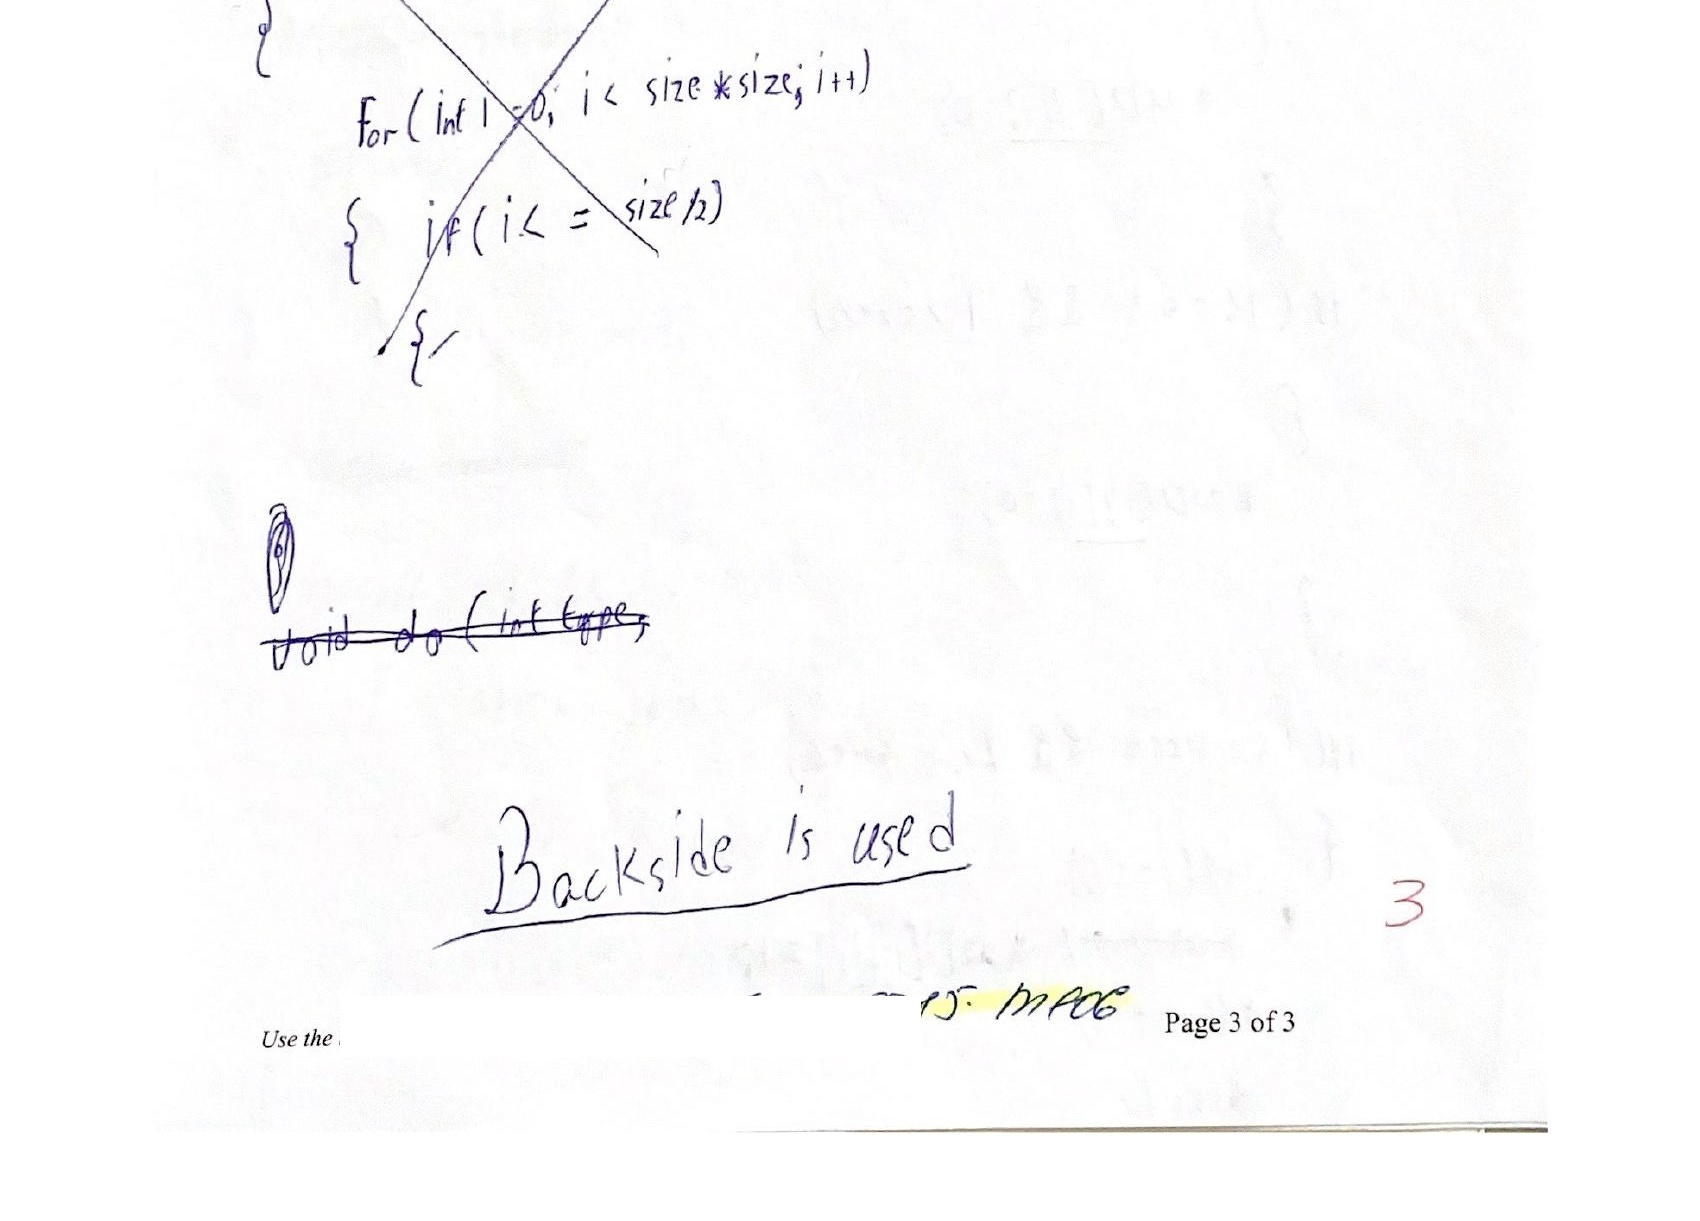 {
For( int i =0; i < size * size; i++)
{ if( i < = size/2)
{
void do ( int type,
Backside is used
3
Use the
Page 3 of 3